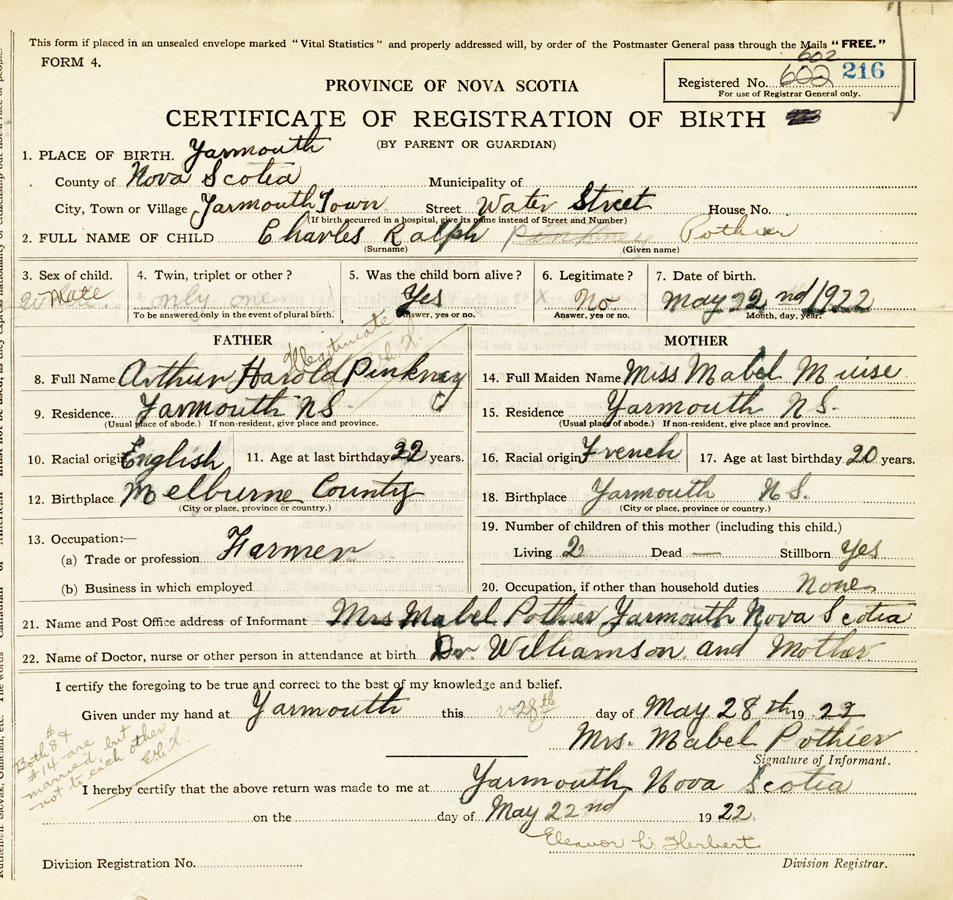 This form if placed in an unsealed envelope marked "Vital Statistics" and properly addressed will, by order of the Postmaster General pass through the Mails "FREE."
FORM 4.
602
Registered No. 602 216
For use of Registrar General only.
PROVINCE OF NOVA SCOTIA
CERTIFICATE OF REGISTRATION OF BIRTH
(BY PARENT OR GUARDIAN)
1. PLACE OF BIRTH. Yarmouth
County of Nova Scotia Municipality of
City, Town or Village Yarmouth Town Street Water Street House No.
(If birth occurred in a hospital, give its name instead of Street and Number)
2. FULL NAME OF CHILD Charles Ralph Pinkney Pothier
(Surname) (Given name)
3. Sex of child. 4. Twin, triplet or other? 5. Was the child born alive? 6. Legitimate? 7. Date of birth.
Male only one Yes No May 22nd 1922
To be answered only in the event of plural birth. Answer, yes or no. Answer, yes or no. Month, day, year.
FATHER MOTHER
Illegitimate
8. Full Name Arthur Harold Pinkney 14. Full Maiden Name Miss Mabel Muise
9. Residence. Yarmouth NS. 15. Residence Yarmouth NS.
(Usual place of abode.) If non-resident, give place and province. (Usual place of abode.) If non-resident, give place and province.
10. Racial origin English 11. Age at last birthday 22 years. 16. Racial origin French 17. Age at last birthday 20 years.
12. Birthplace Melburne County 18. Birthplace Yarmouth NS.
(City or place, province or country.) (City or place, province or country.)
13. Occupation:— 19. Number of children of this mother (including this child.)
(a) Trade or profession Farmer Living 2 Dead — Stillborn Yes
(b) Business in which employed 20. Occupation, if other than household duties None
21. Name and Post Office address of Informant Mrs Mabel Pothier Yarmouth Nova Scotia
22. Name of Doctor, nurse or other person in attendance at birth Dr. Williamson and Mother
I certify the foregoing to be true and correct to the best of my knowledge and belief.
Given under my hand at Yarmouth this 28th day of May 28th 1923
Mrs. Mabel Pothier
Signature of Informant.
Both #8 &
#14 are
married but
not to each other
I hereby certify that the above return was made to me at Yarmouth Nova Scotia
on the day of May 22nd 1922
Eleanor L. Herbert
Division Registration No. Division Registrar.